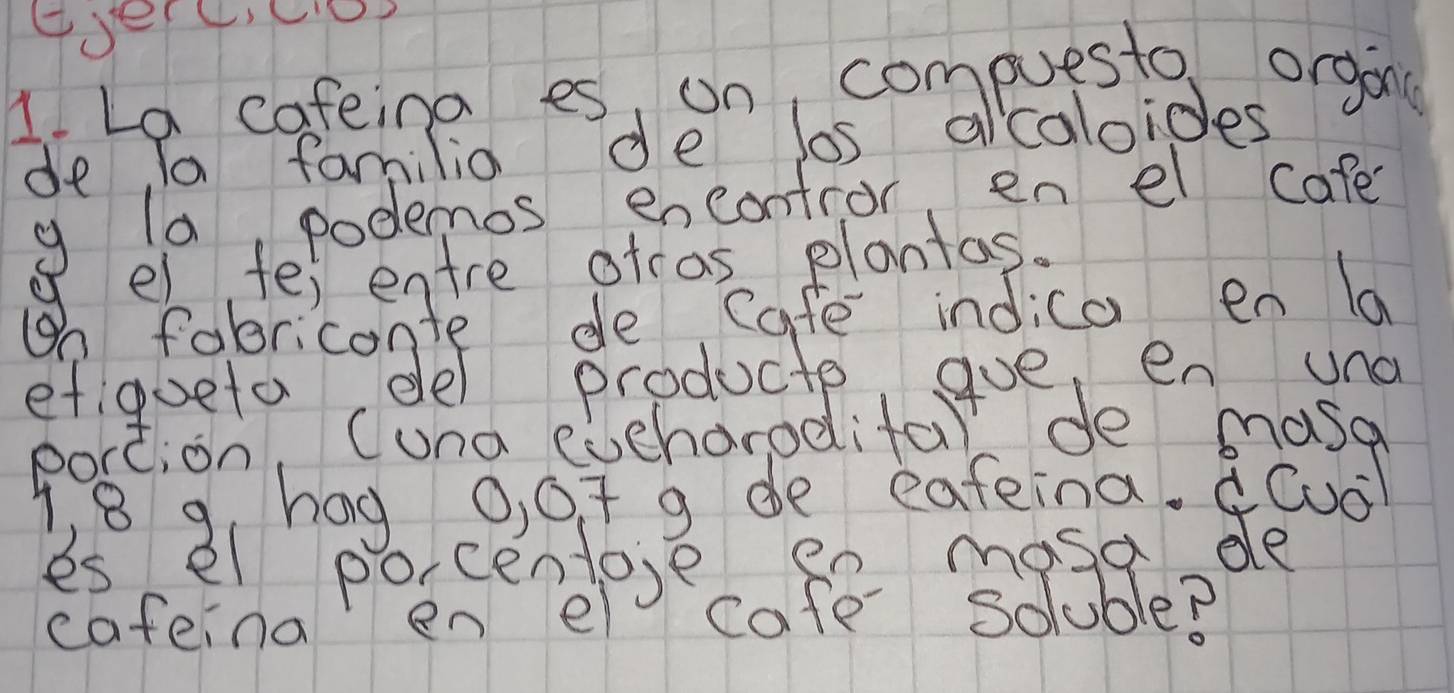 Ejercicios
1. La cafeina es un compuesto orgánic
de la familia de los alcaloides
y la podemos encontrar en el café
y el te, entre otras plantas.
Un fabricante de café indica en la
etiqueta del producto que, en una
porción (una cucharadita) de masa
1,8 g, hay 0,07 g de cafeina. ¿Cuál
es el porcentaje en masa de
cafeina en el café soluble?